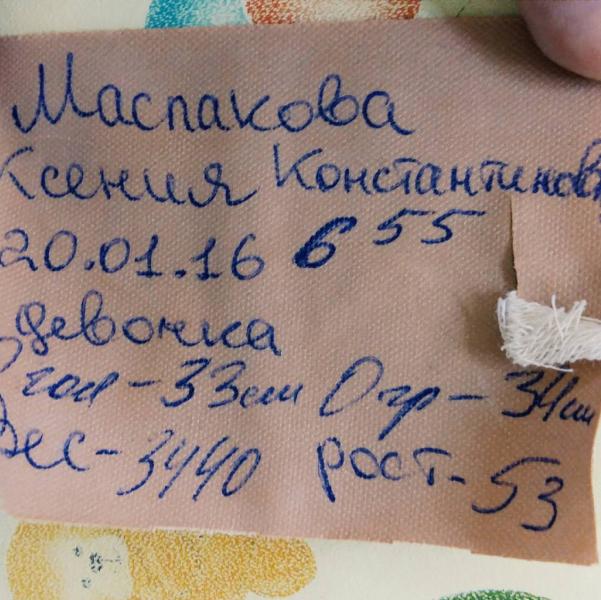 Маспакова
Ксения Константиновн
20.01.16 6 55
девочка
О гол - 33 см О гр - 34 см
Вес - 3440 рост - 53